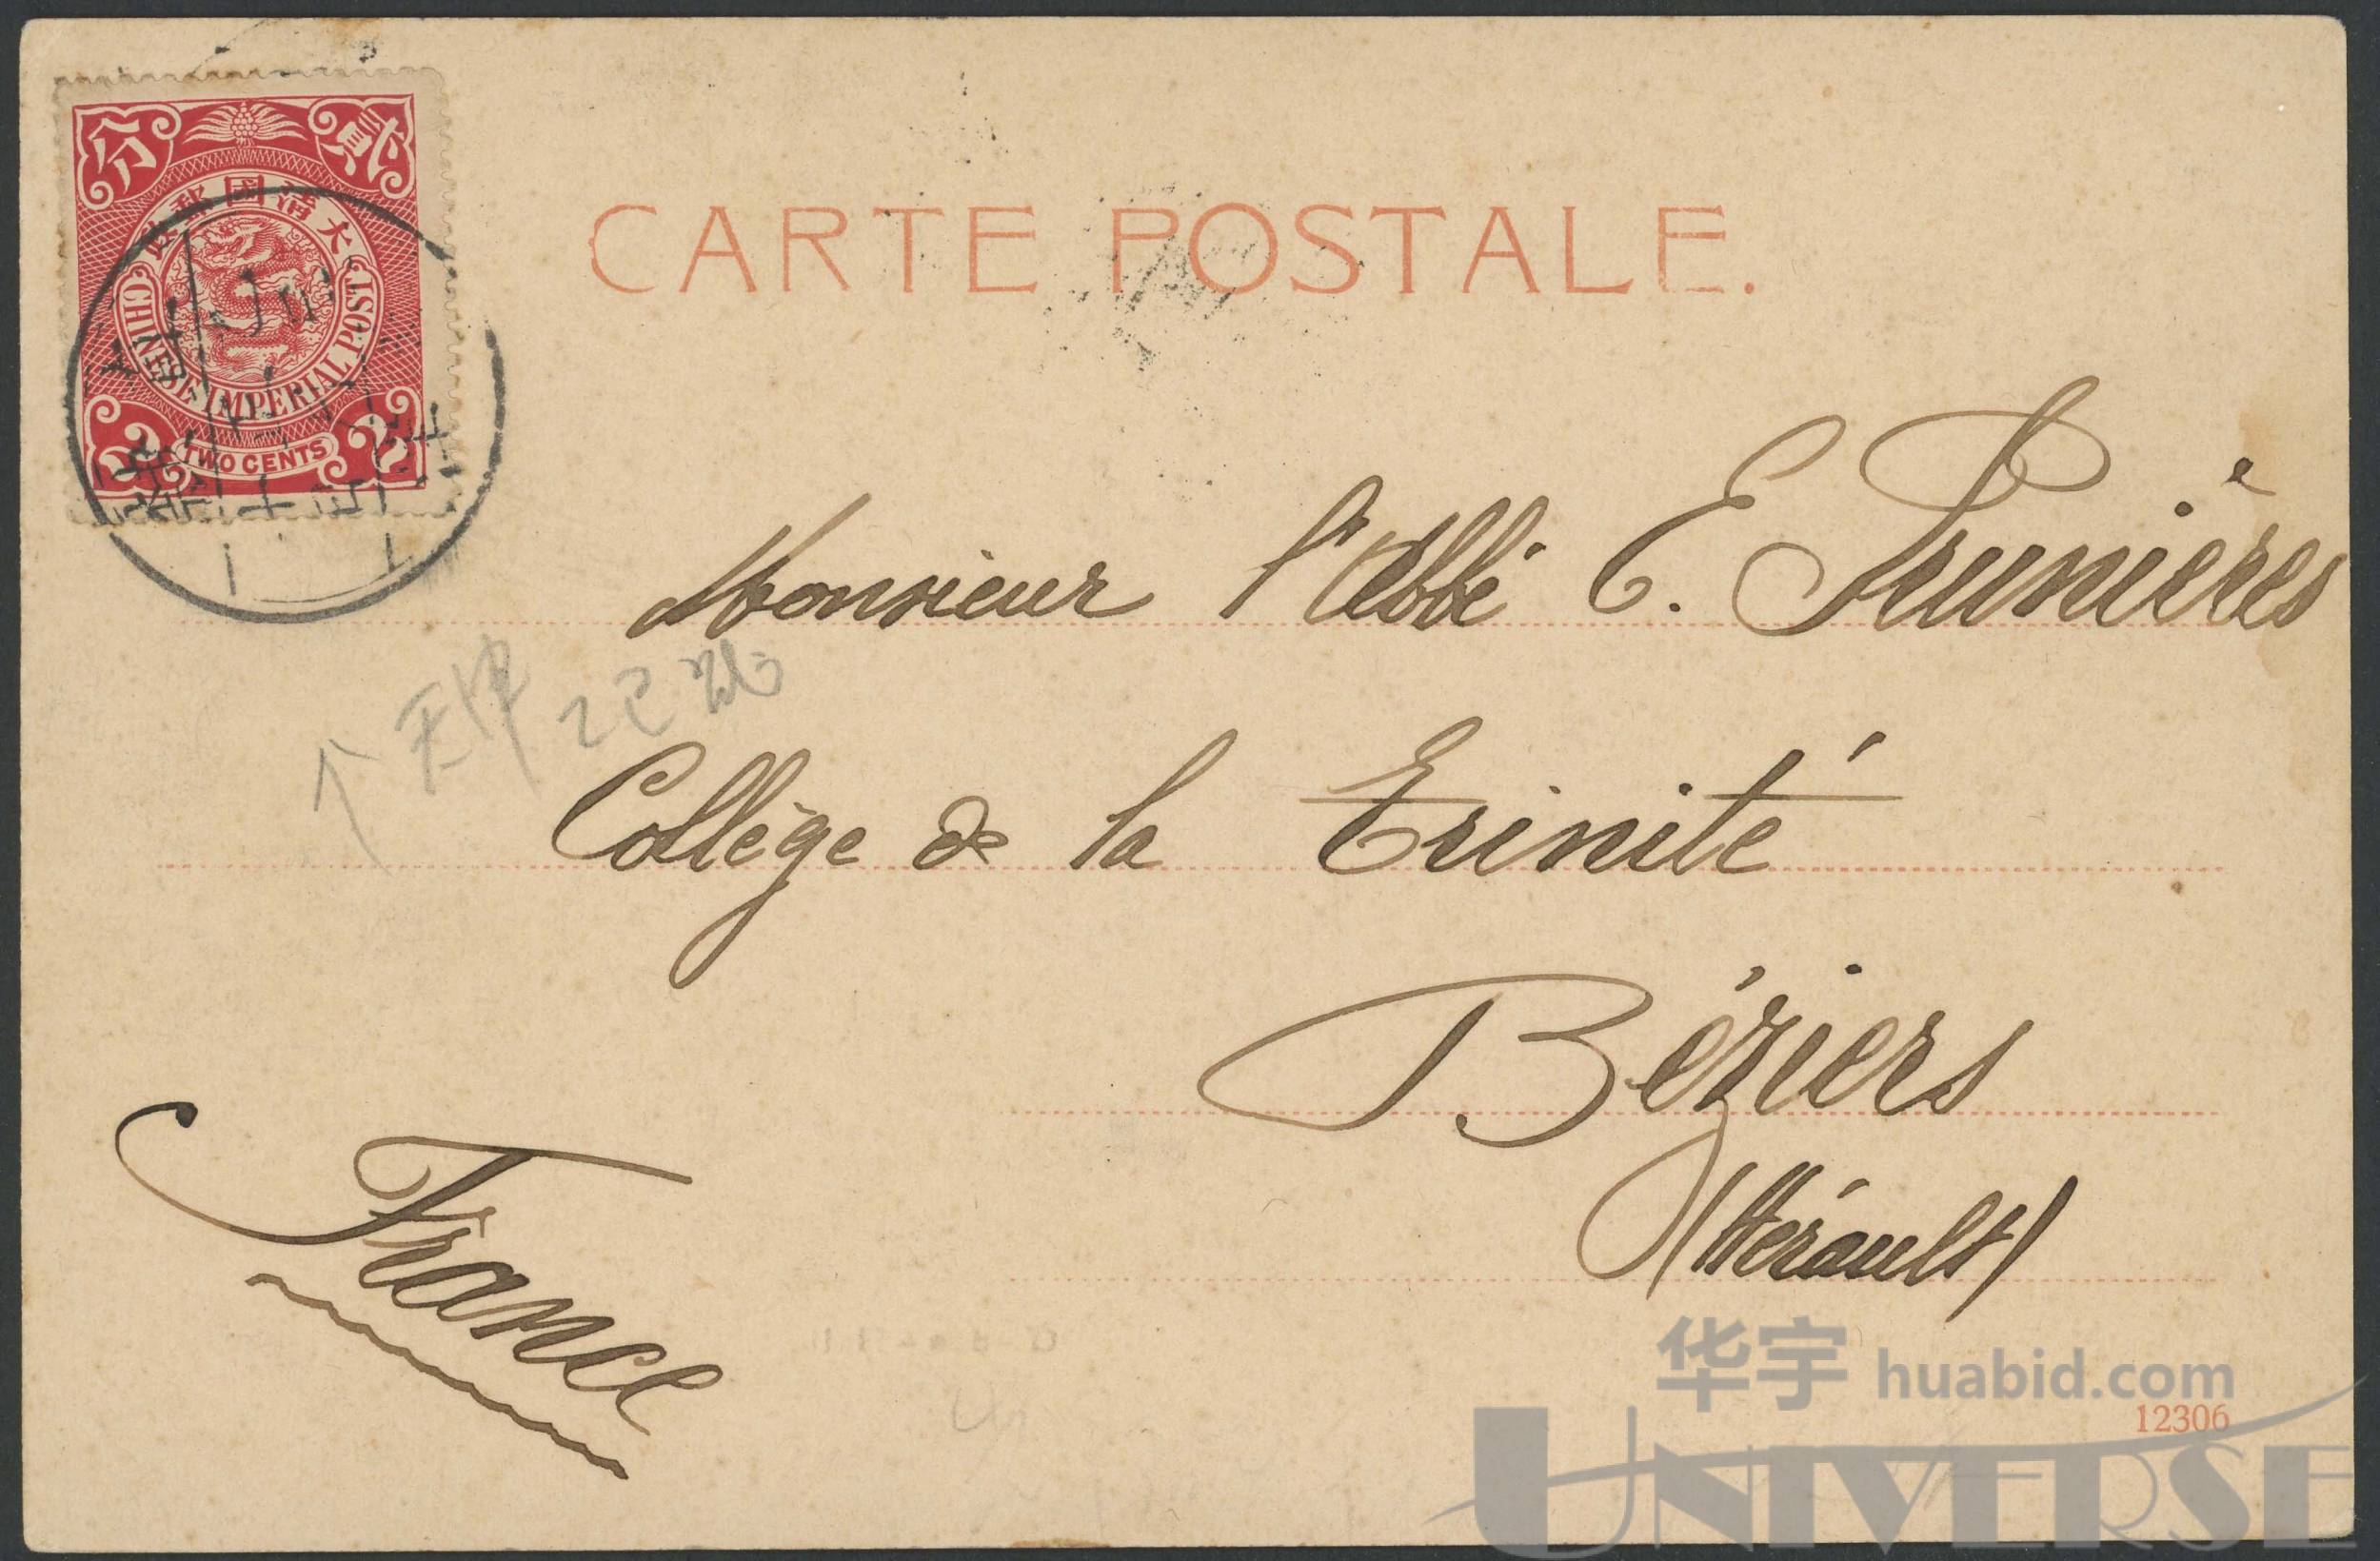 分 貳
大清國郵政
CHINESE IMPERIAL POST
2 TWO CENTS 2
CARTE POSTALE.
Monsieur l'Abbé E. Prunières
Collège de la Trinité
Béziers
(Hérault)
France
华宇 huabid.com
12306
UNIVERSE